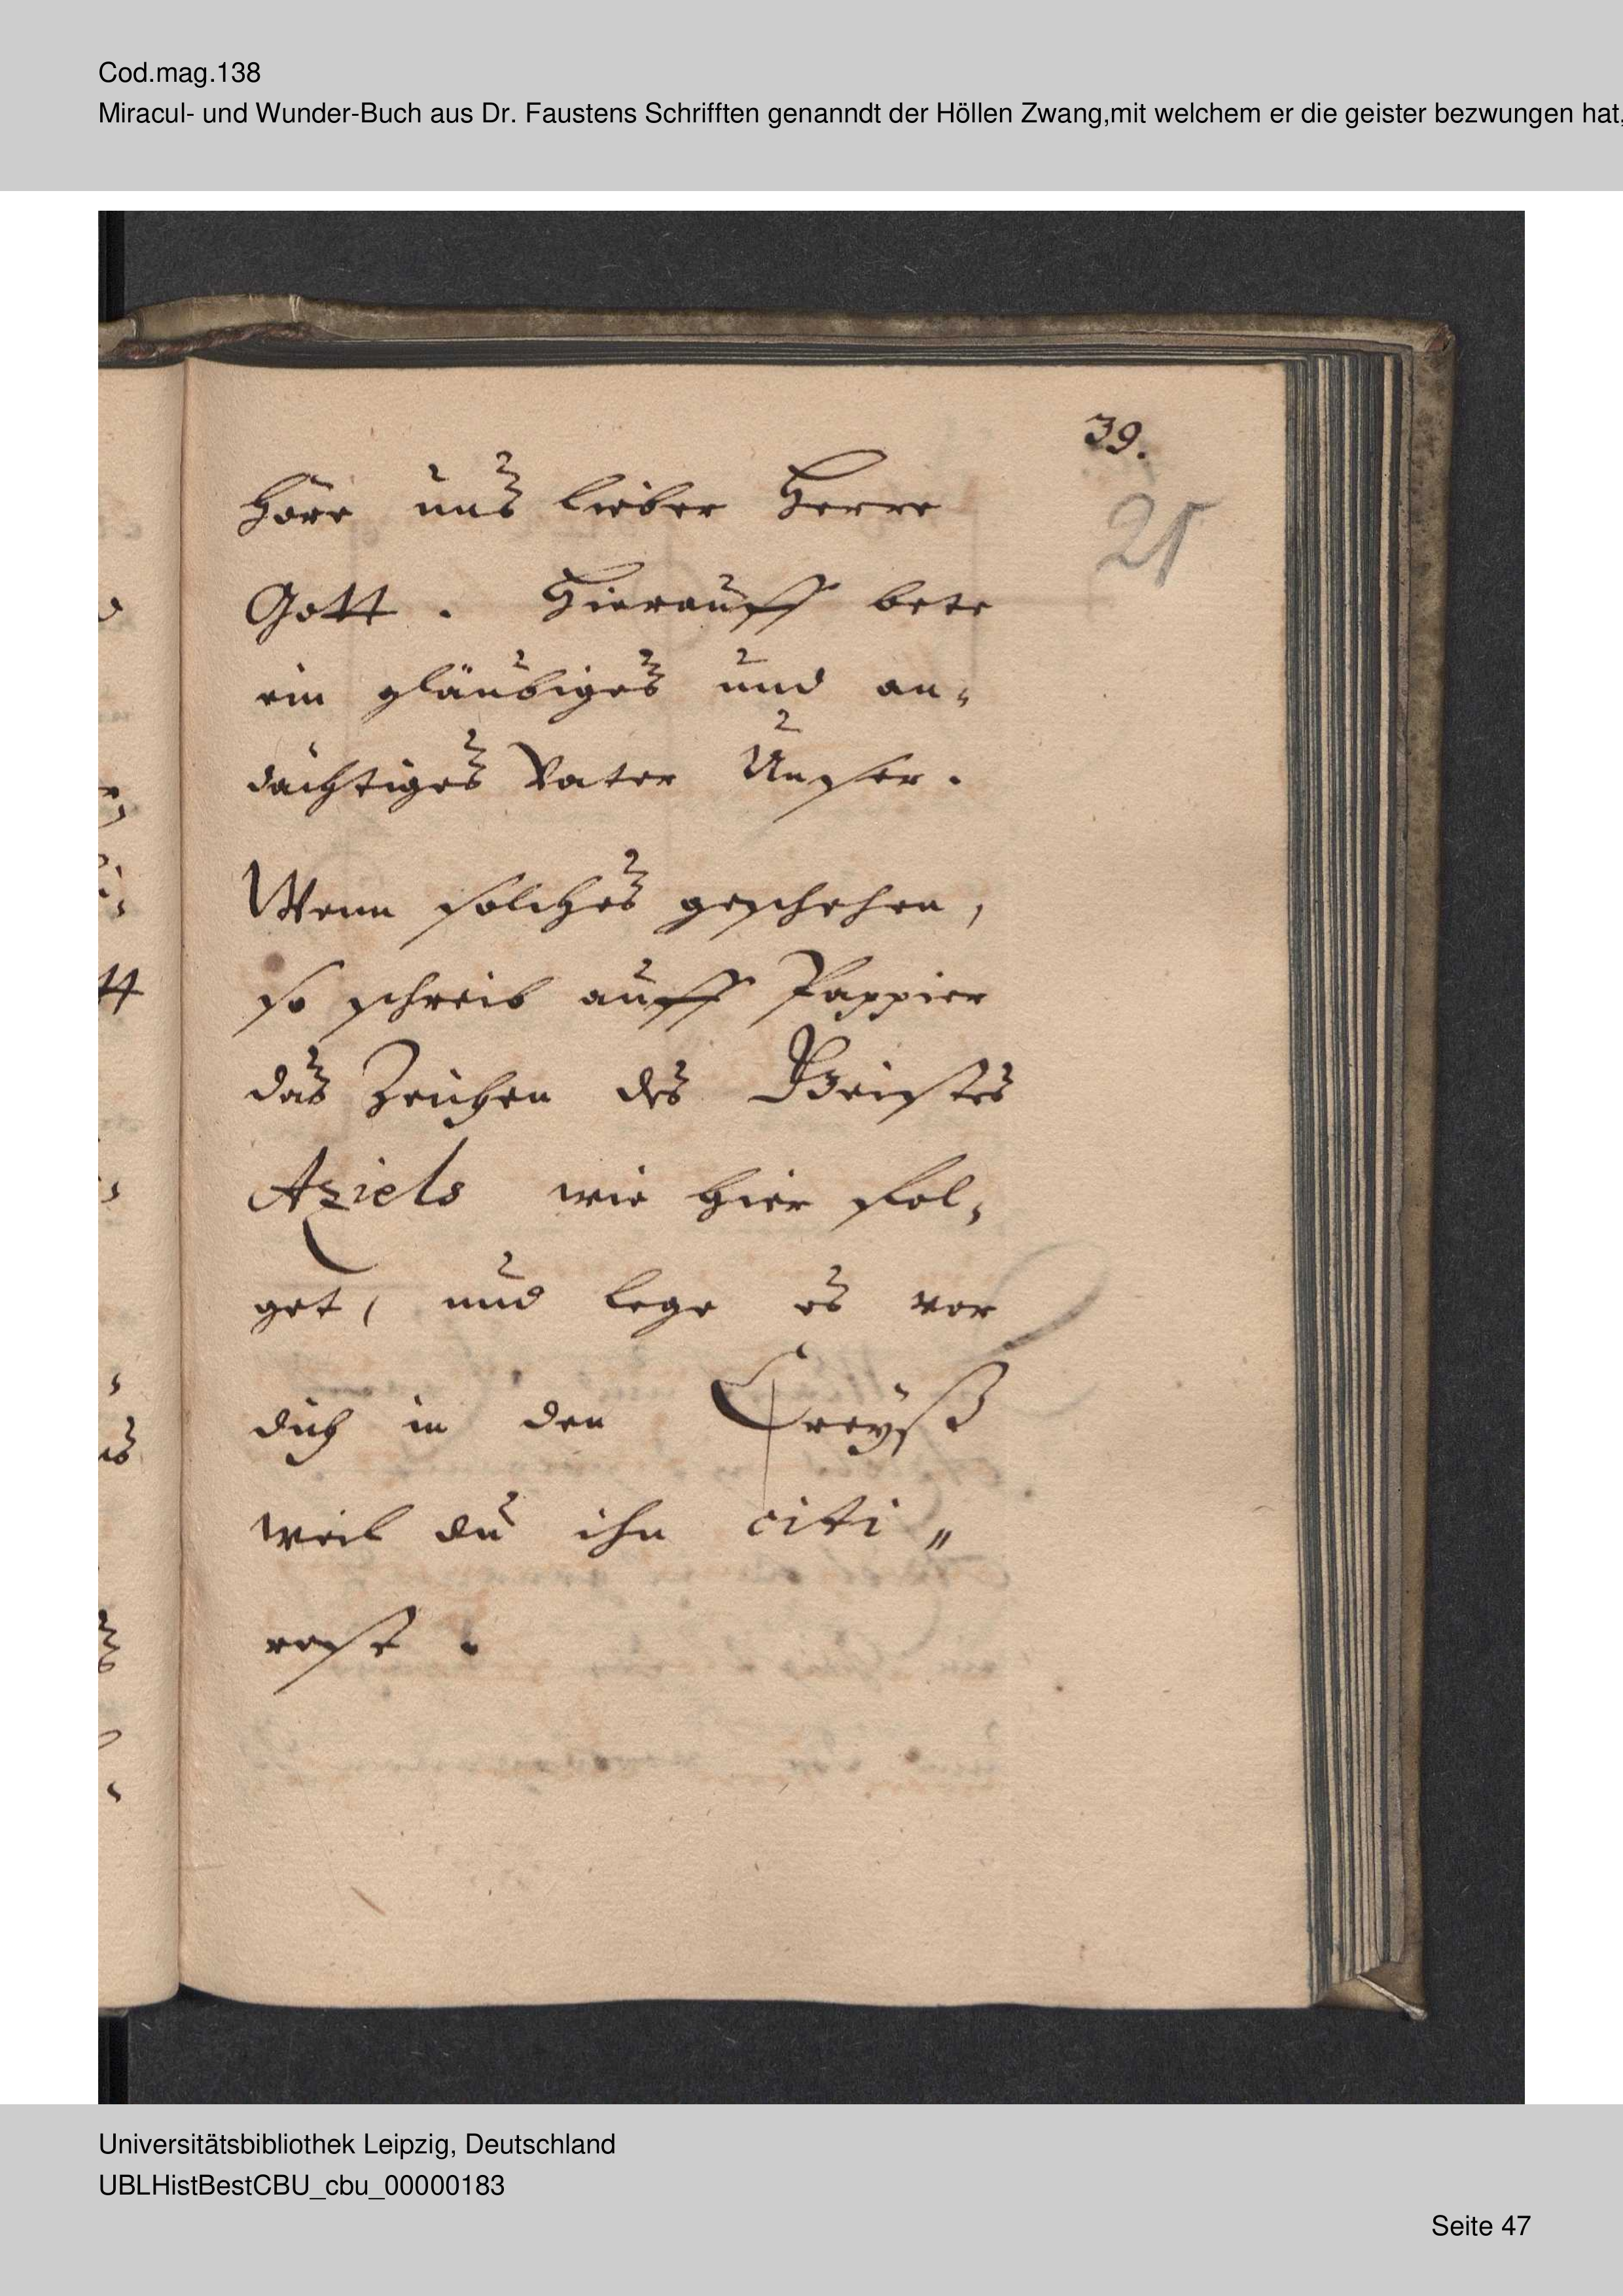 Cod.mag.138
Miracul- und Wunder-Buch aus Dr. Faustens Schrifften genanndt der Höllen Zwang,mit welchem er die geister bezwungen hat,
39.
21
höre uns lieber Herre
Gott. Hierauff bete
ein gläubiges und an-
dächtiges Vater Unser.
Wenn solches geschehen,
so schreib auff Pappier
das Zeichen des Geistes
Aziels wie hier fol-
get, und lege es vor
dich in den Creyß
weil du ihn citi-
rest.
Universitätsbibliothek Leipzig, Deutschland
UBLHistBestCBU_cbu_00000183
Seite 47